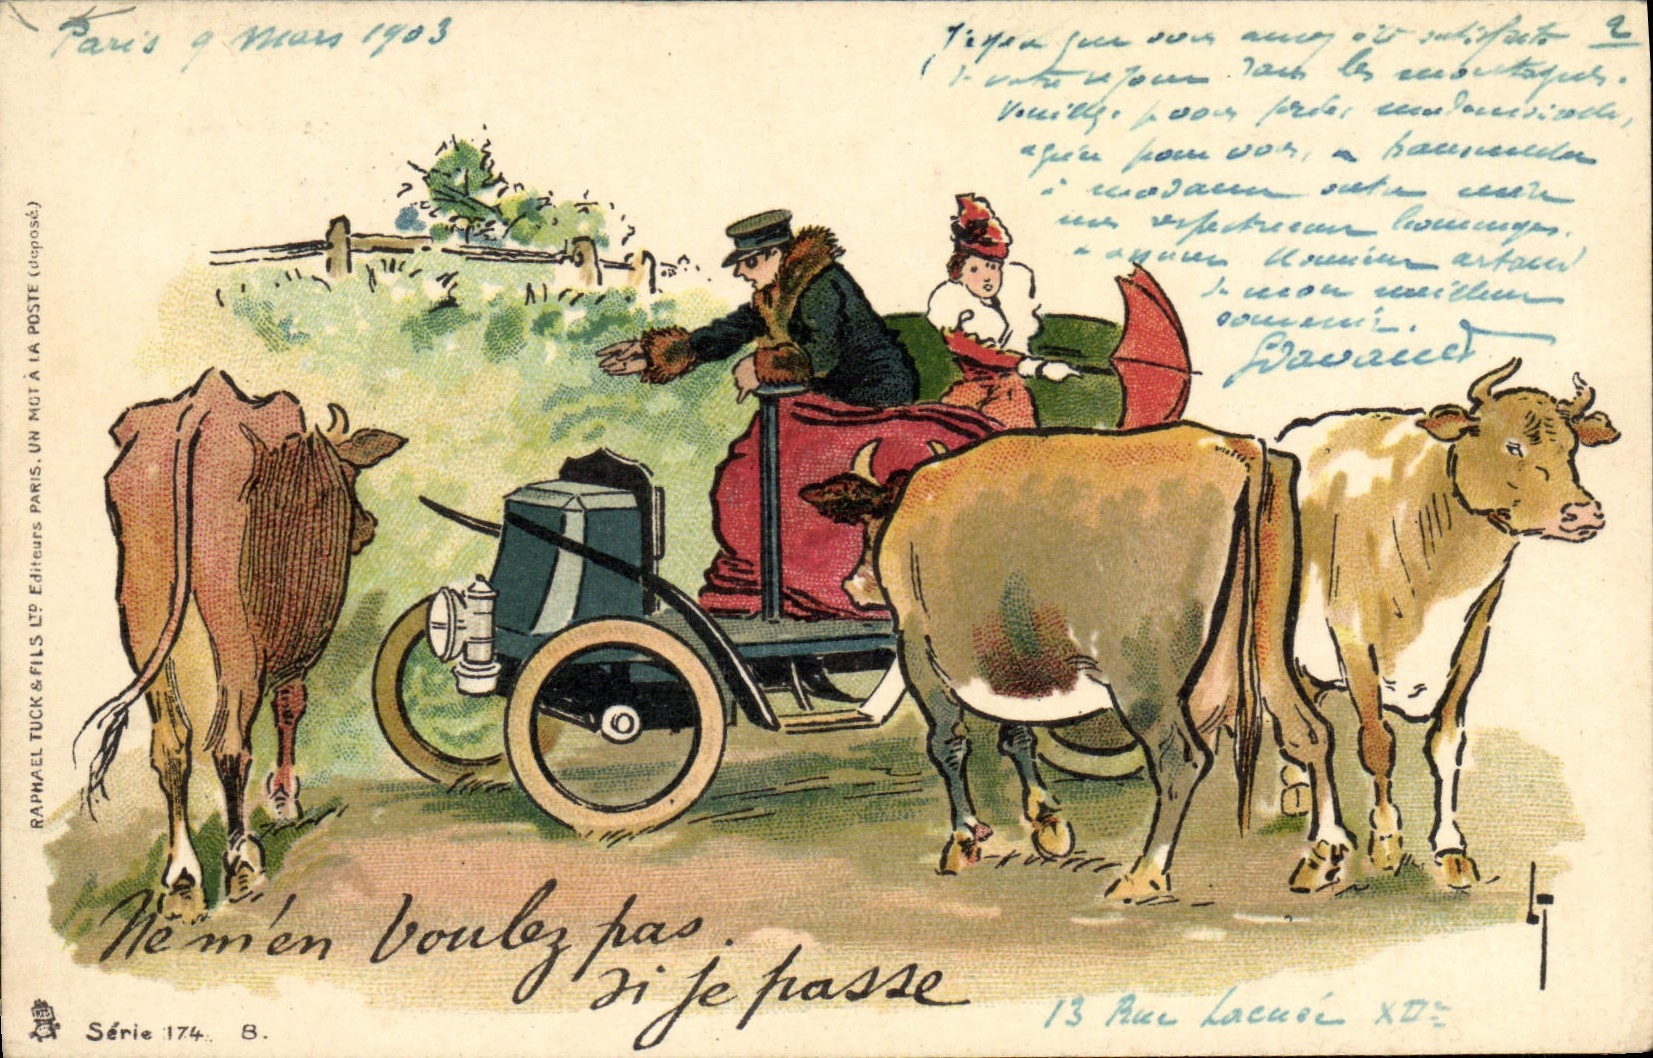 Paris 9 Mars 1903
2
J'espère que vous aurez été satisfaite
de votre séjour dans les montagnes.
Veuillez, je vous prie, mademoiselle,
agréer pour vous, transmettre
à madame votre mère
mes respectueux hommages.
Monsieur
de mon meilleur
souvenir.
RAPHAEL TUCK & FILS LTD Editeurs PARIS. UN MOT À LA POSTE (déposé)
Ne m'en voulez pas.
si je passe
13 Rue Lacuée XIIe
Série 174. B.